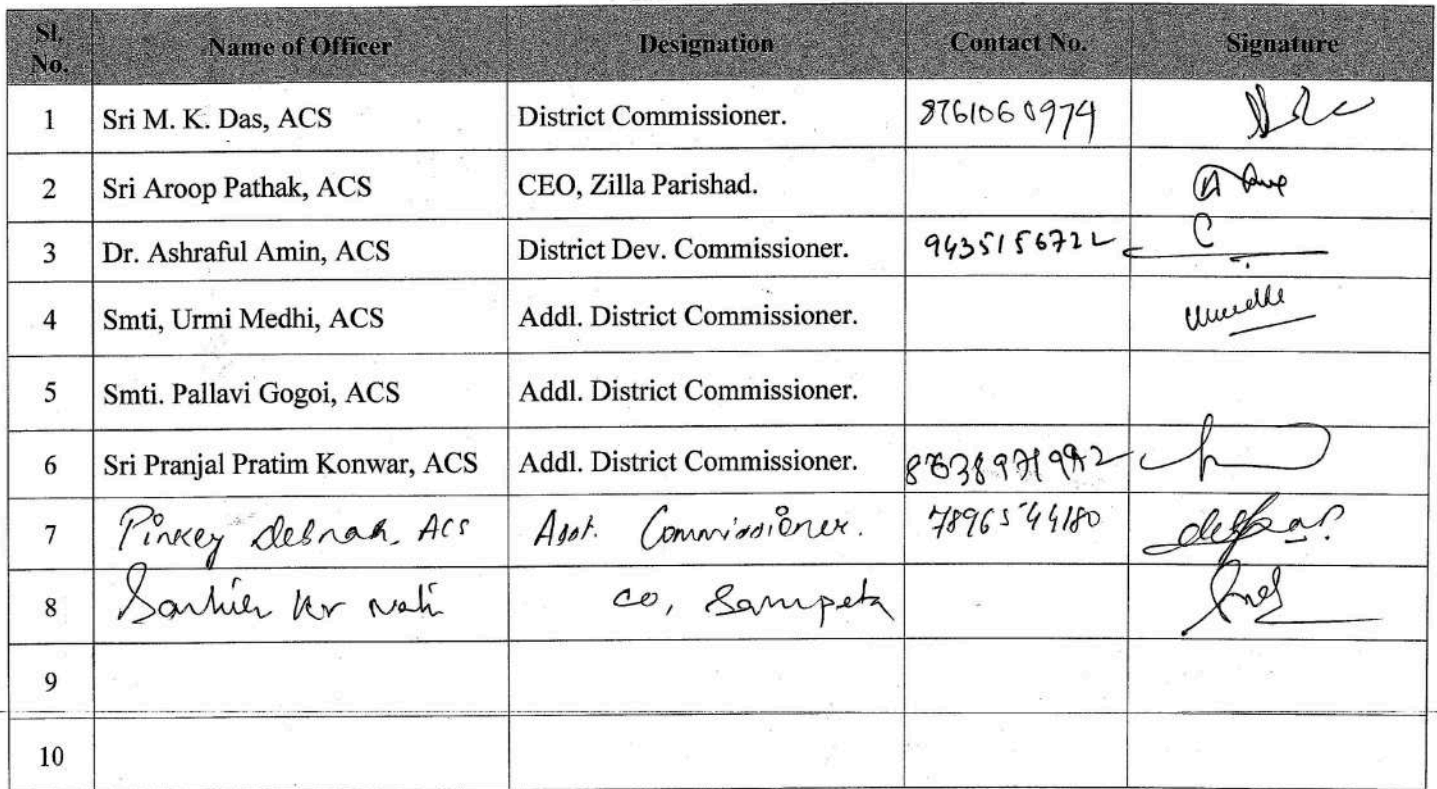 Sl. No. Name of Officer Designation Contact No. Signature
1 Sri M. K. Das, ACS District Commissioner. 8761060974
2 Sri Aroop Pathak, ACS CEO, Zilla Parishad.
3 Dr. Ashraful Amin, ACS District Dev. Commissioner. 9435156722
4 Smti, Urmi Medhi, ACS Addl. District Commissioner.
5 Smti. Pallavi Gogoi, ACS Addl. District Commissioner.
6 Sri Pranjal Pratim Konwar, ACS Addl. District Commissioner.
7 Pinkey ACS Asst. Commissioner. 7896544180
8 Kr CO,
9
10